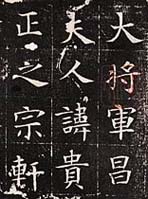 大將軍昌
夫人諱貴
正之宗軒